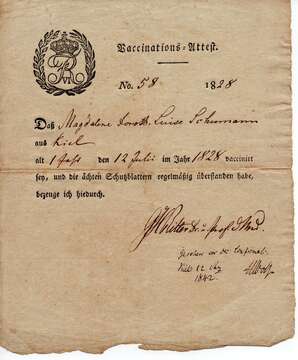 Vaccinations-Attest.
No. 58 1828
Daß Magdalene Doroth. Luise Schumann
aus Kiel
alt 1 Jahr den 12 Julii im Jahr 1828 vaccinirt
sey, und die ächten Schutzblattern regelmäßig überstanden habe,
bezeuge ich hiedurch.
Kiel 12
1842